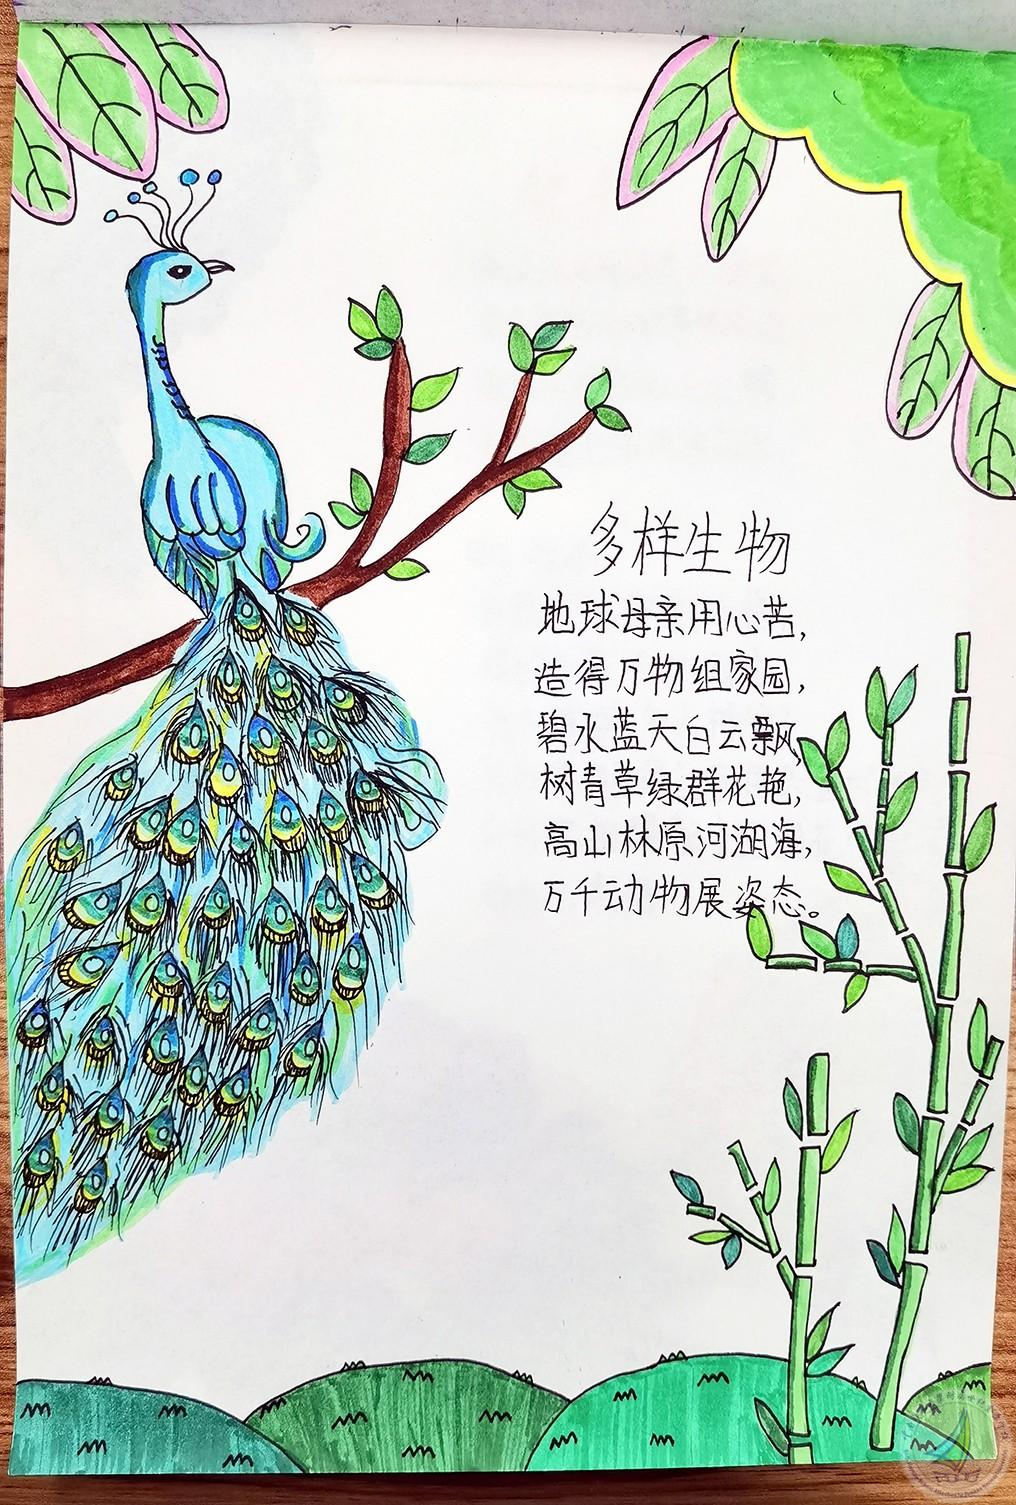 多样生物
地球母亲用心苦，
造得万物组家园，
碧水蓝天白云飘，
树青草绿群花艳，
高山林原河湖海，
万千动物展姿态。